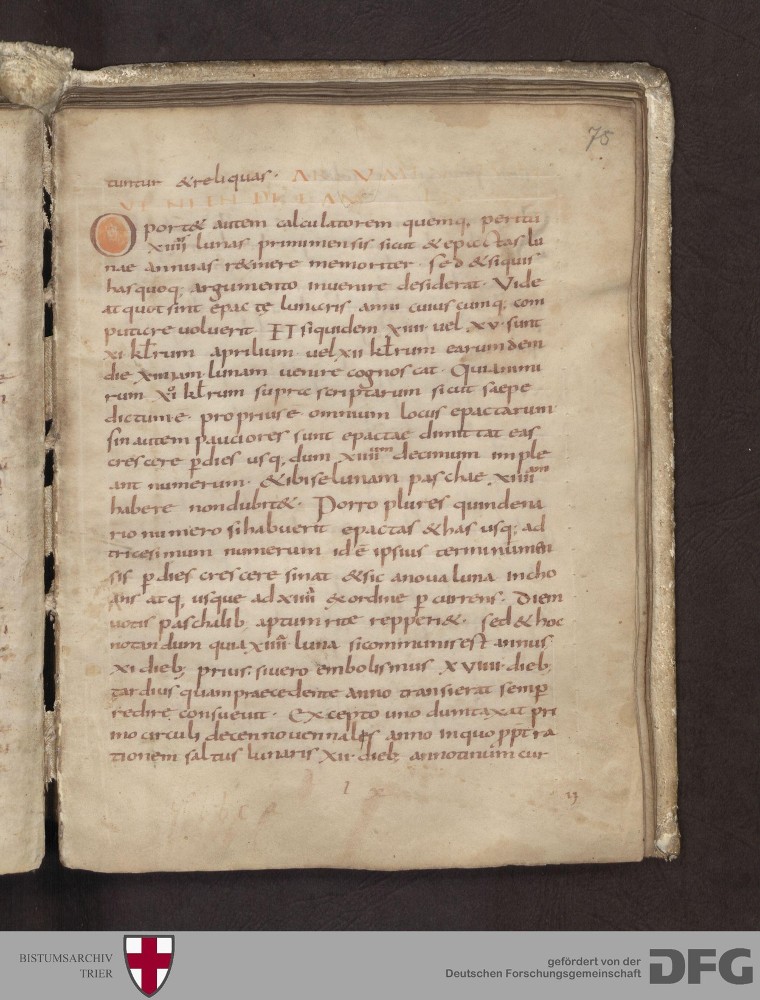 75
tuntur &reliquas·
Oport& autem calculatorem quemq; peritū
XIIII lunas primi mensis sicut & epactas lu
nae annuas r&inere memoriter · sed &siquis
has quoq; argumento invenire desiderat · Vide
at quot sint epactae lunaris anni cuiuscumq; com
putare voluerit ET siquidem XIIII vel XV · sunt
XI kl̄rum aprilium vel XII kl̄rum earumdem
die XIIIIam lunam venire cognoscat · Quia mini
rum XIº kl̄rum supra scriptarum sicut saepe
dictum ē · proprius ē omnium locus epactarum
sin autem pauciores sunt epactae dimittat eas
crescere p̄dies usq; dum decimum imple
ant numerum · & ibi se lunam paschae XIIIIam
habere non dubit& · Porro plures quindena
rio numero si habuerit epactas & has usq; ad
tricesimum numerum id ē ipsius terminum en
sis p̄dies crescere sinat & sic a nova luna incho
ans atq; usque ad XIIII & ordine p̄currens · Diem
votis paschalib; aptum rite repperi& · sed & hoc
notandum quia XIIII luna si communis est annus
XI dieb; prius · si vero embolismus XVIIII · dieb;
tardius quam praecedente anno transierat semp̄
redire consuevit · Excepto uno dumtaxat pri
mo circuli decennovennalis anno in quo pp̄t ra
tionem saltus lunaris XII · dieb; annotinum cur
I x
BISTUMSARCHIV
TRIER
gefördert von der
Deutschen Forschungsgemeinschaft
DFG